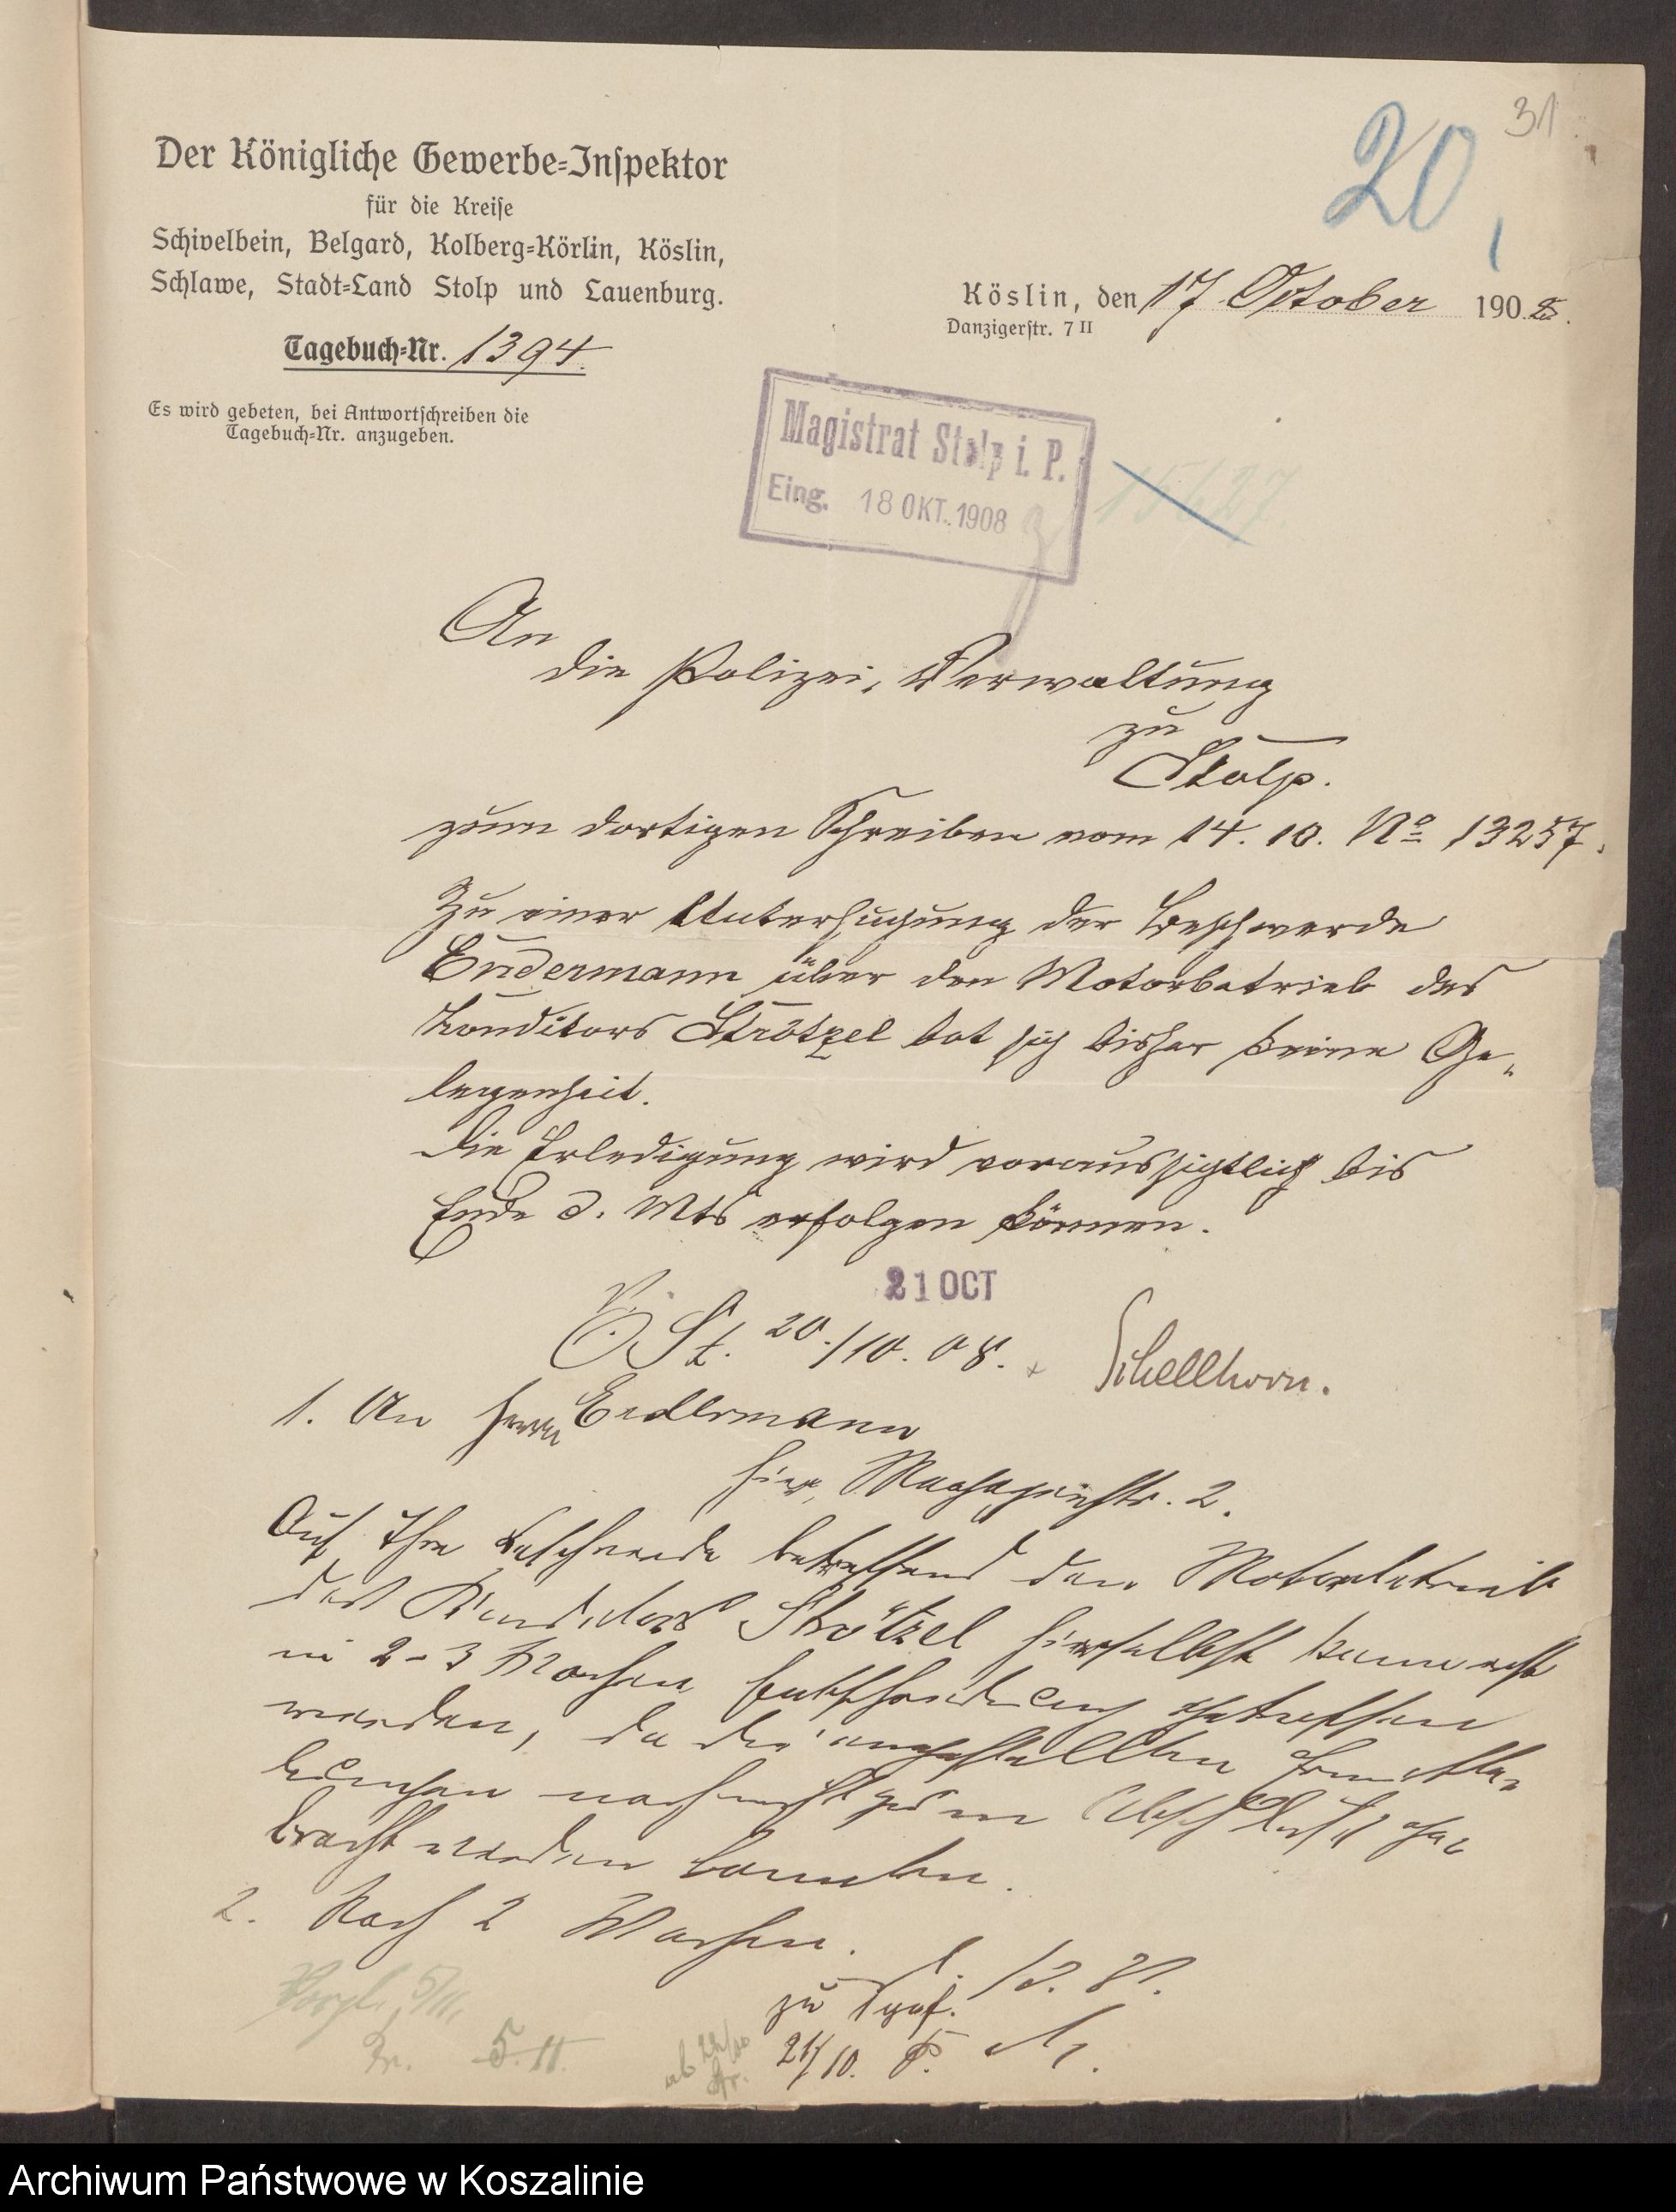 31
20,
Der Königliche Gewerbe-Inspektor
für die Kreise
Schivelbein, Belgard, Kolberg-Körlin, Köslin,
Schlawe, Stadt-Land Stolp und Lauenburg.
Tagebuch-Nr. 1394.
Es wird gebeten, bei Antwortschreiben die
Tagebuch-Nr. anzugeben.
Köslin, den 17 October 1908.
Danzigerstr. 7 II
Magistrat Stolp i. P.
Eing. 18 OKT. 1908
An
die Polizei-Verwaltung
zu
Stolp.
zum dortigen Schreiben vom 14. 10. No 13257.
Zu einer Untersuchung der Beschwerde
Endermann über den Motorbetrieb des
Konditors Strötzel bot sich bisher keine Ge-
legenheit.
Die Erledigung wird voraussichtlich bis
Ende d. Mts erfolgen können.
21 OCT
St. 20./10. 08.
Schellhorn.
1. An Herrn Endermann
hier, 2.
Auf Ihre Beschwerde betreffend den Motorbetrieb
des Konditors Strötzel hierselbst kann erst
in 2-3 Wochen Entscheidung getroffen
werden, da die angestellten Ermitte-
lungen noch nicht zum Abschluß ge-
bracht werden konnten.
2. Nach 2 Wochen.
zu
21/10.
5. 11.
ab 22/10
Archiwum Państwowe w Koszalinie